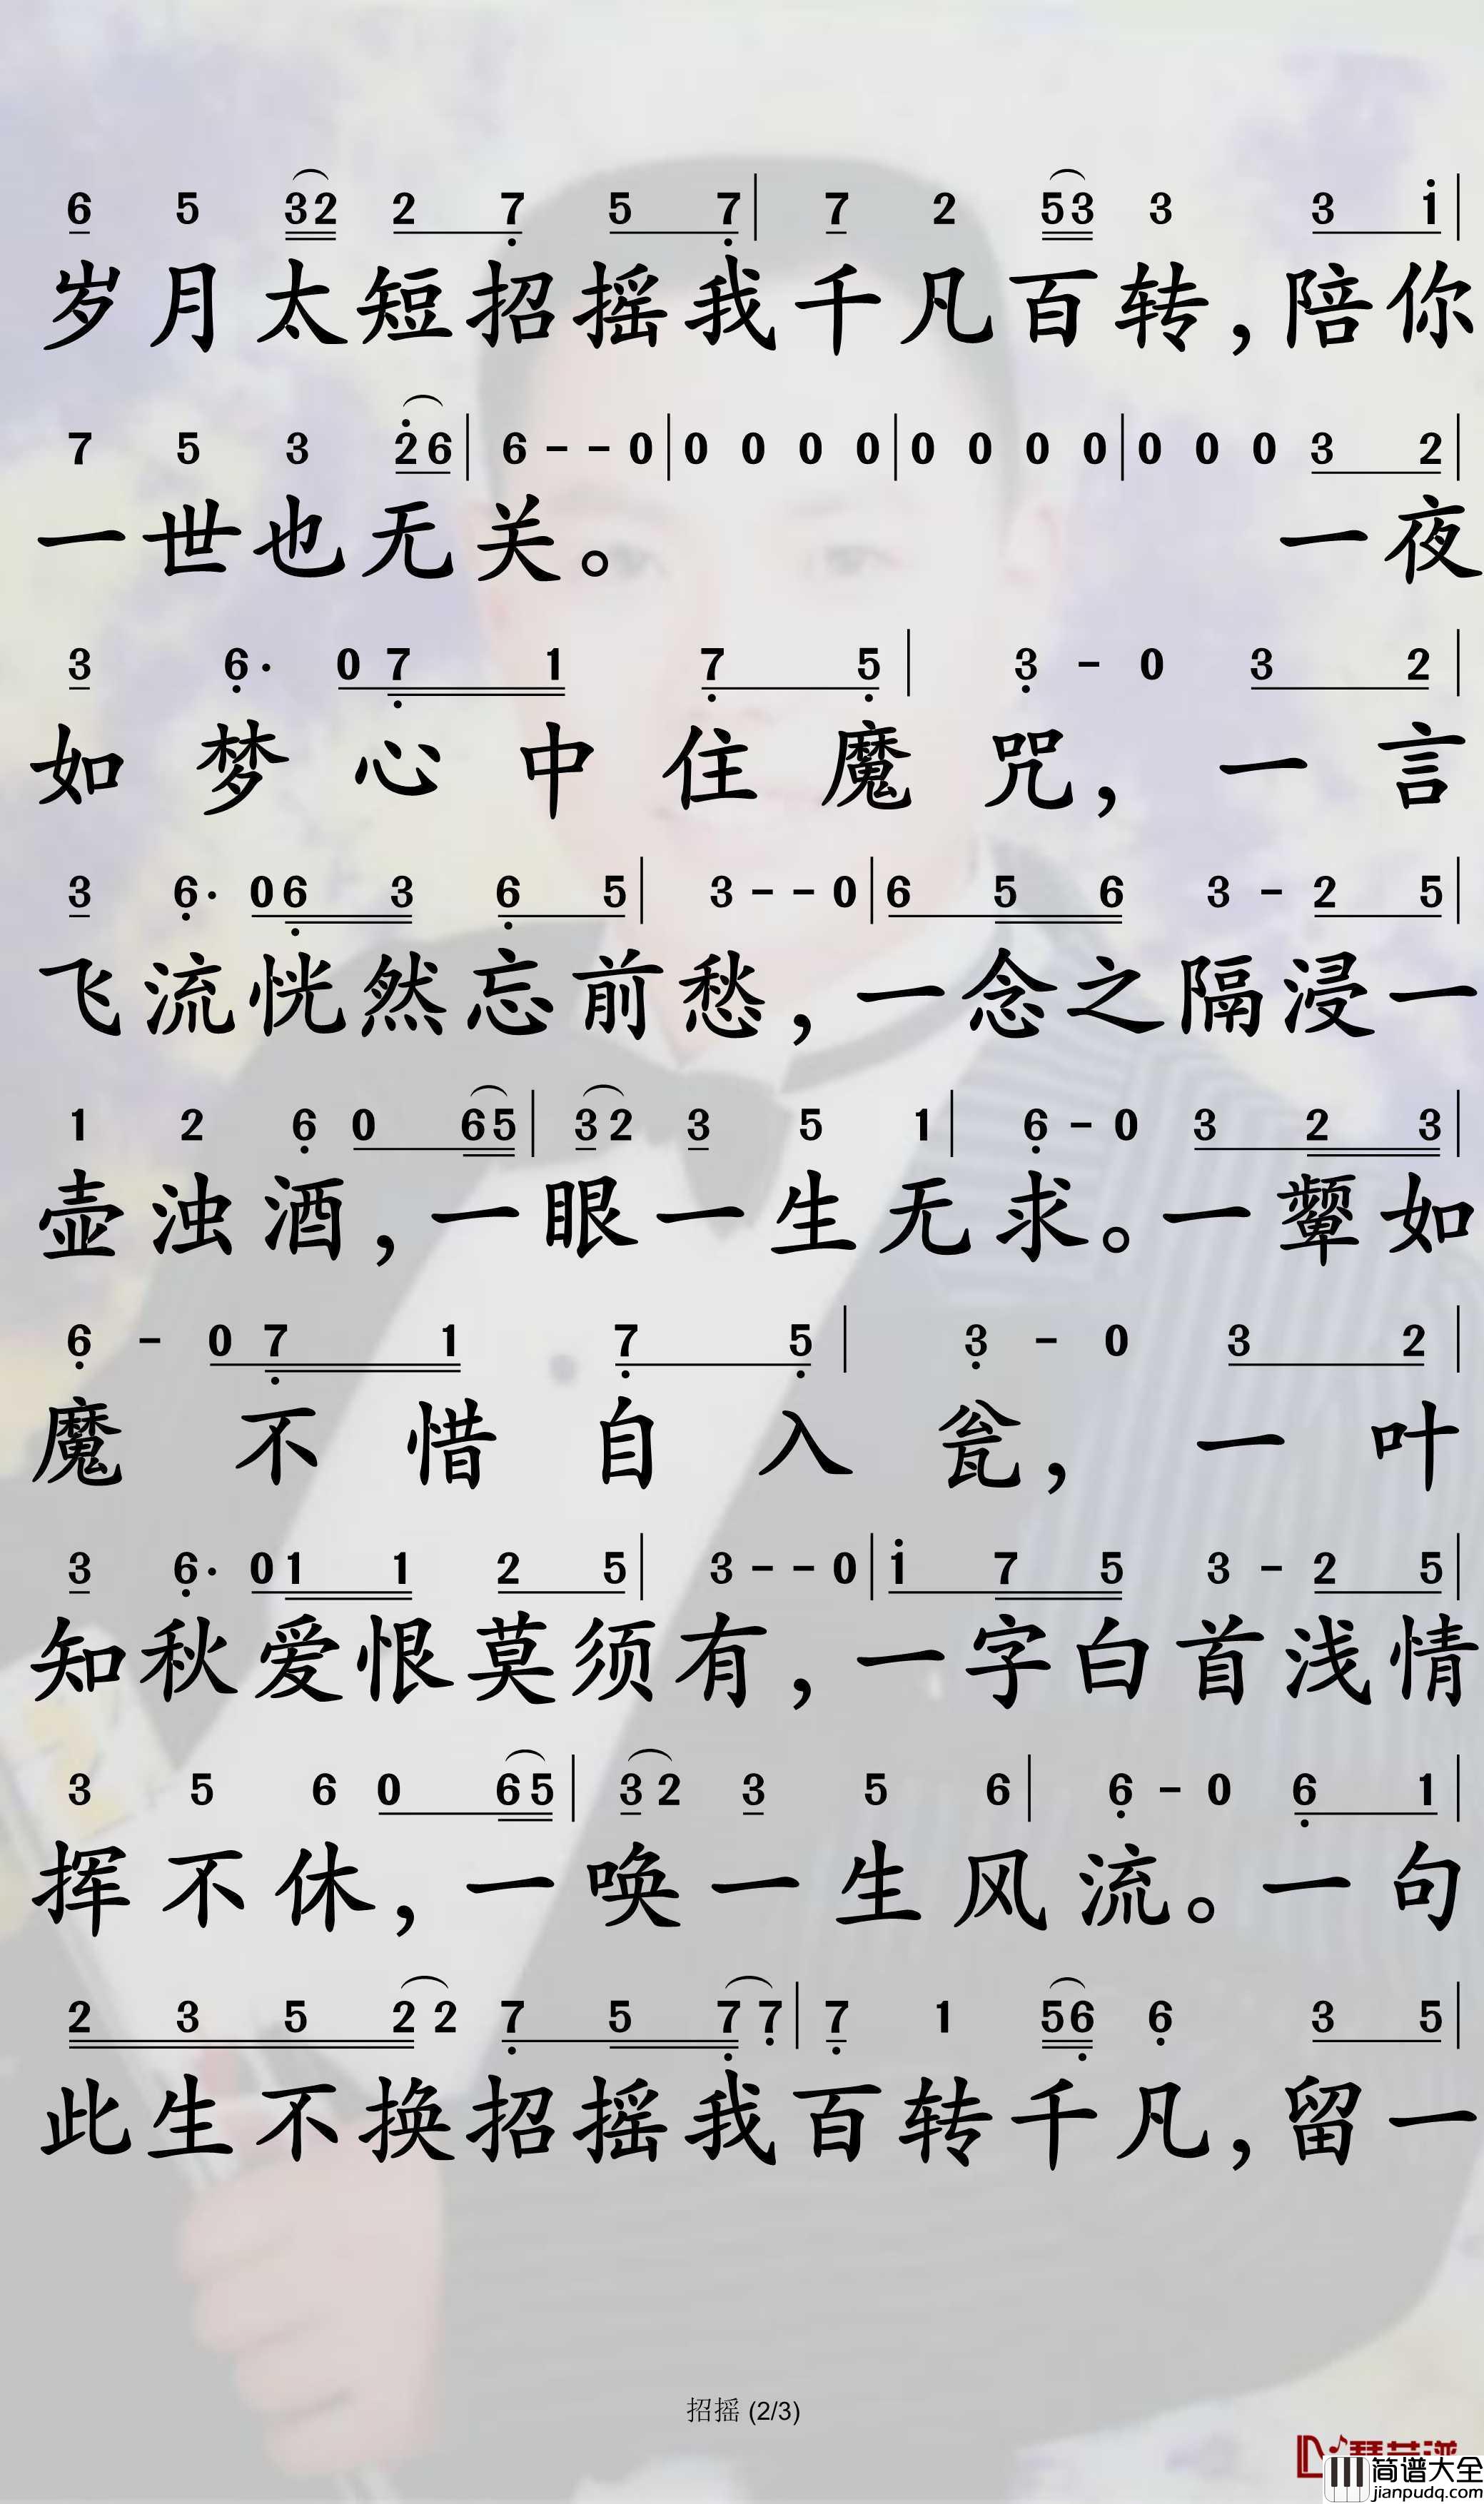 6 5 32 2 7 5 7 | 7 2 53 3 3 i |
岁月太短招摇我千凡百转，陪你
7 5 3 26 | 6 - - 0 | 0 0 0 0 | 0 0 0 0 | 0 0 0 3 2 |
一世也无关。 一夜
3 6· 0 7 1 7 5 | 3 - 0 3 2 |
如梦心中住魔咒，一言
3 6· 0 6 3 6 5 | 3 - - 0 | 6 5 6 3 - 2 5 |
飞流恍然忘前愁，一念之隔浸一
1 2 6 0 65 | 3 2 3 5 1 | 6 - 0 3 2 3 |
壶浊酒，一眼一生无求。一颦如
6 - 0 7 1 7 5 | 3 - 0 3 2 |
魔不惜自入瓮，一叶
3 6· 0 1 1 2 5 | 3 - - 0 | i 7 5 3 - 2 5 |
知秋爱恨莫须有，一字白首浅情
3 5 6 0 65 | 3 2 3 5 6 | 6 - 0 6 1 |
挥不休，一唤一生风流。一句
2 3 5 2 2 7 5 7 7 | 7 1 56 6 3 5 |
此生不换招摇我百转千凡，留一
招摇 (2/3)
简谱大全
jianpudq.com